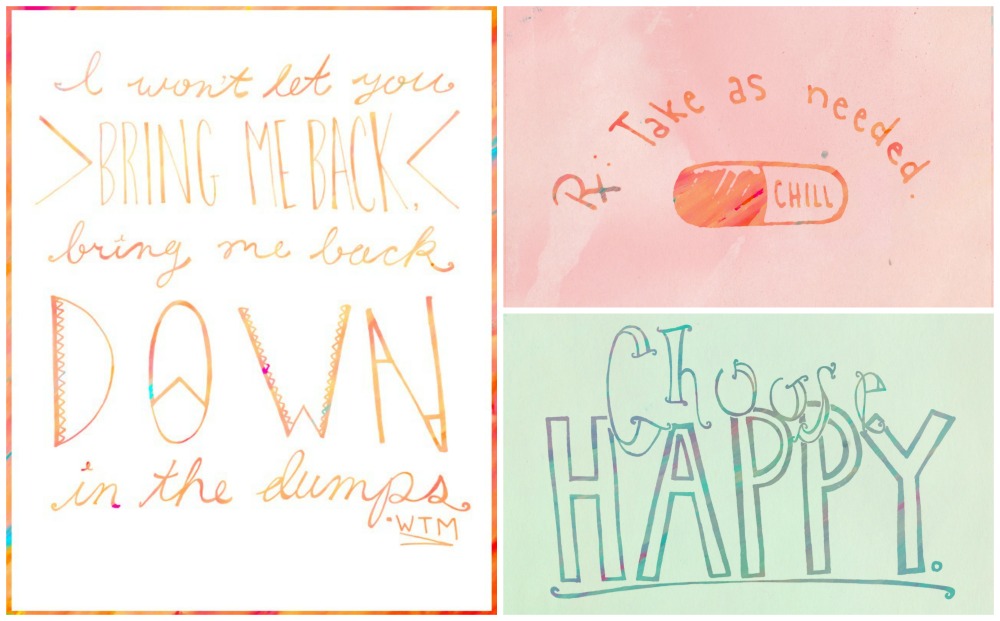 I won't let you
BRING ME BACK,
bring me back
DOWN
in the dumps.
•WTM
Rx: Take as needed.
CHILL
Choose
HAPPY.